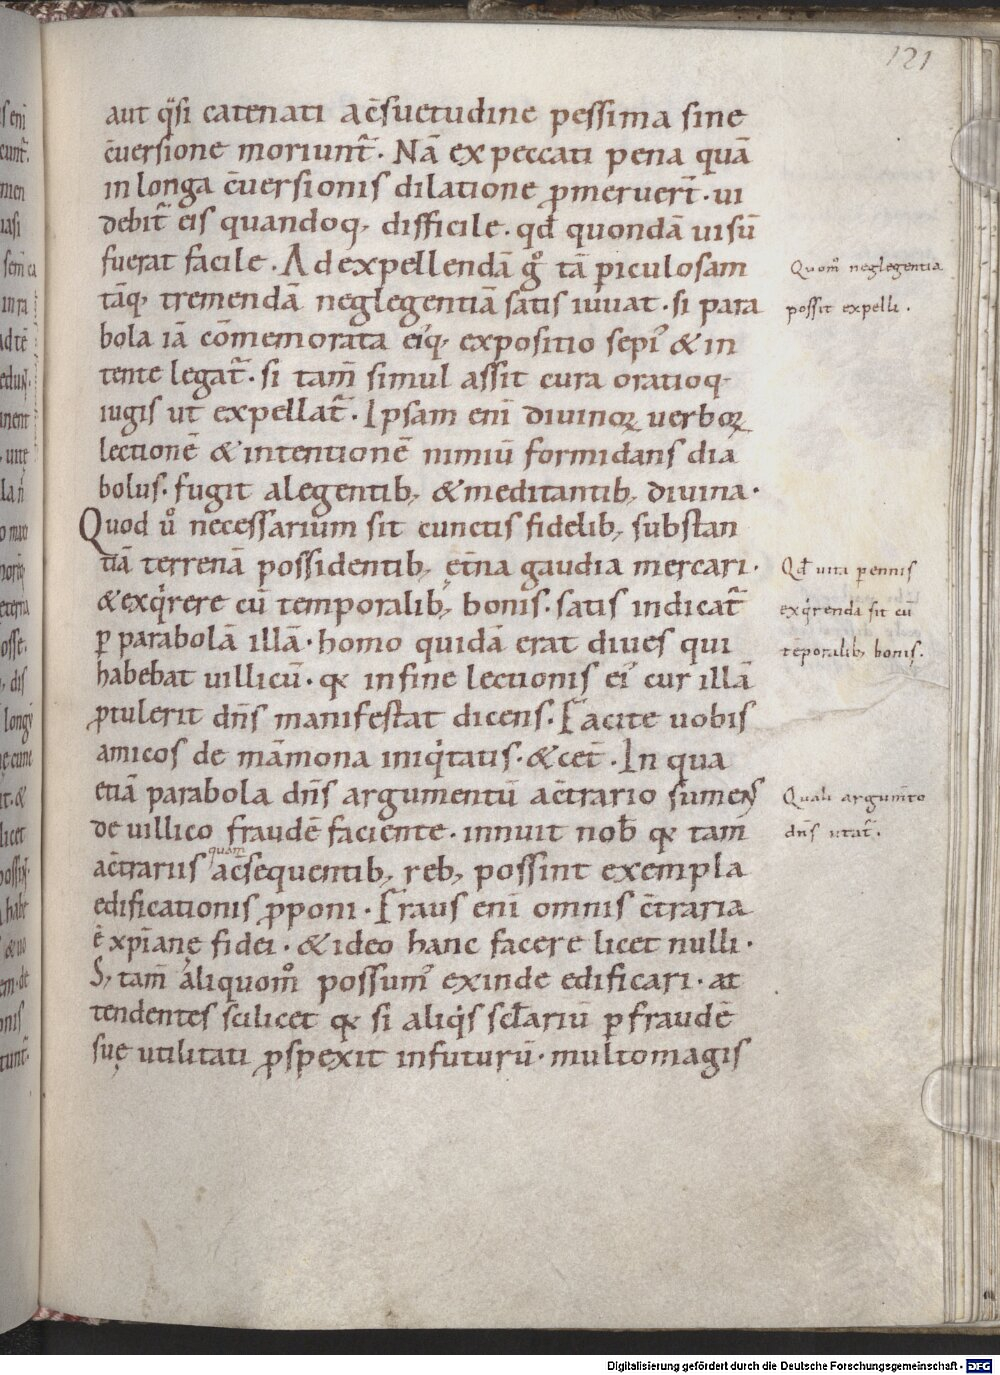 121
aut q̄si catenati ac̄suetudine pessima sine
c̄uersione moriunt̄. Nā ex peccati pena quā
in longa c̄uersionis dilatione ꝓmeruert̄. ui
debit̄ eis quandoq; difficile. qđ quondā uisū
fuerat facile. Ad expellendā gͦ tā ꝑiculosam
tāq; tremendā neglegentiā satis iuuat. si para
bola iā cōmemorata eiꝰq; expositio sepiꝰ & in
tente legat̄. si tam̄ simul assit cura oratioq;
iugis ut expellat̄. Ipsam eni̅ diuinoꝝ uerboꝝ
lectionē & intentionē nimiū formidans dia
bolus. fugit alegentib; & meditantib; diuina.
Quod uͦ necessarium sit cunctis fidelib; substan
tiā terrenā possidentib; et̄na gaudia mercari.
& exqͥrere cū temporalib; bonis. satis indicat̄
ꝑ parabolā illā. homo quidā erat diues qui
habebat uillicū. qꝫ in fine lectionis eiꝰ cur illā
ꝓtulerit dn̄s manifestat dicens. Facite uobis
amicos de māmona iniqͥtatis. & cet̄. In qua
etiā parabola dn̄s argumentū ac̄trario sumens
de uillico fraudē faciente. innuit nob̄ qꝫ tam
ac̄trariis quam ac̄sequentib; reb; possint exempla
edificationis ꝓponi. Fraus eni̅ omnis c̄traria
ē xp̄iane fidei. & ideo hanc facere licet nulli.
S; tam̄ aliquomͦ possumꝰ exinde edificari. at
tendentes scilicet qꝫ si aliqͥs sc̄lariū ꝑ fraudē
suę utilitati ꝓspexit in futurū. multo magis
Quomͦ neglegentia
possit expelli.
Qđ uita ꝑennis
exqͥrenda sit cū
tēporalib; bonis.
Quali argum̄to
dn̄s utat̄.
Digitalisierung gefördert durch die Deutsche Forschungsgemeinschaft - DFG